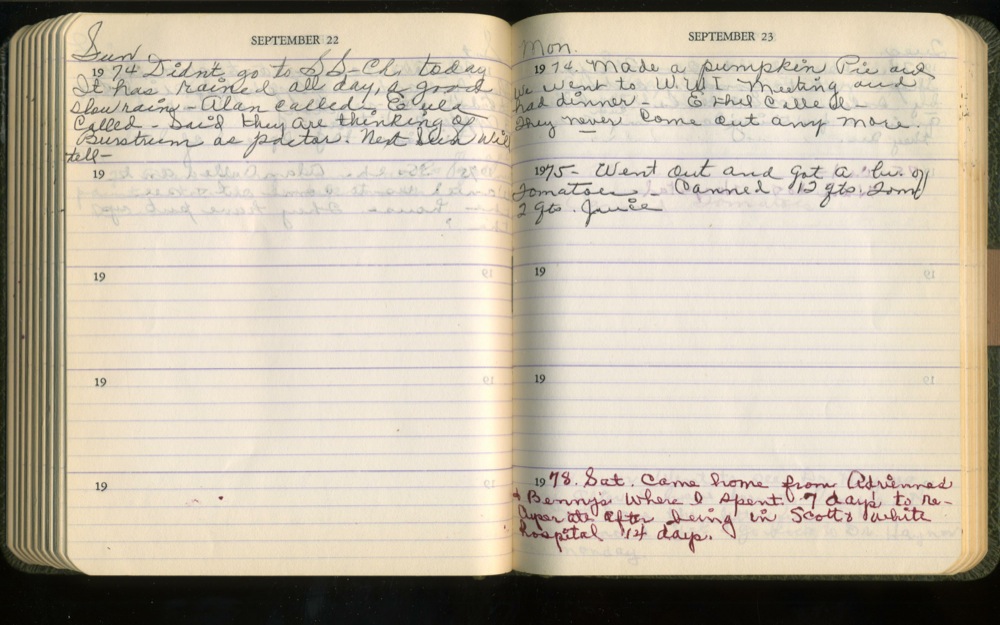 SEPTEMBER 22
Sun
1974 Didn't go to SS-Ch. today
It has rained all day, a good
slow rain - Alan called, Eula
Called - Said they are thinking of
Burstrum as pastor. Next Sun Will
tell-
19
19
19
19
SEPTEMBER 23
Mon.
1974. Made a pumpkin Pie and
we went to W.W.I. Meeting and
had dinner - Ethel Called -
They never Come out any more.
1975- Went out and got a bu. of
Tomatoes - Canned 12 qts. Tom
2 qts. Juice
19
19
1978. Sat. Came home from Adriennes
& Benny's Where I spent 7 days to re-
cuperate after being in Scott & White
hospital 14 days.